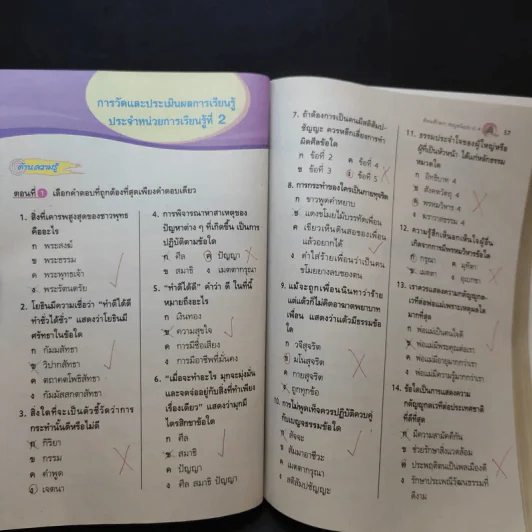 การวัดและประเมินผลการเรียนรู้
ประจำหน่วยการเรียนรู้ที่ 2
ด้านความรู้
ตอนที่ 1 เลือกคำตอบที่ถูกต้องที่สุดเพียงคำตอบเดียว
1. สิ่งที่เคารพสูงสุดของชาวพุทธ
คืออะไร
ก พระสงฆ์
ข พระธรรม
ค พระพุทธเจ้า
ง พระรัตนตรัย
2. โยธินมีความเชื่อว่า "ทำดีได้ดี
ทำชั่วได้ชั่ว" แสดงว่าโยธินมี
ศรัทธาในข้อใด
ก กัมมสัทธา
ข วิปากสัทธา
ค ตถาคตโพธิสัทธา
ง กัมมัสสกตาสัทธา
3. สิ่งใดที่จะเป็นตัวชี้วัดว่าการ
กระทำนั้นดีหรือไม่ดี
ก กิริยา
ข กรรม
ค คำพูด
ง เจตนา
4. การพิจารณาหาสาเหตุของ
ปัญหาต่าง ๆ ที่เกิดขึ้น เป็นการ
ปฏิบัติตามข้อใด
ก ศีล ค ปัญญา
ข สมาธิ ง เมตตากรุณา
5. "ทำดีได้ดี" คำว่า ดี ในที่นี้
หมายถึงอะไร
ก เงินทอง
ข ความสุขใจ
ค การมีชื่อเสียง
ง การมีอาชีพที่มั่นคง
6. "เมื่อจะทำอะไร มุกจะมุ่งมั่น
และจดจ่ออยู่กับสิ่งที่ทำเพียง
เรื่องเดียว" แสดงว่ามุกมี
ไตรสิกขาข้อใด
ก ศีล
ข สมาธิ
ค ปัญญา
ง ศีล สมาธิ ปัญญา
57
7. ถ้าต้องการเป็นคนมีสติสัมป-
ชัญญะ ควรหลีกเลี่ยงการทำ
ผิดศีลข้อใด
ก ข้อที่ 2 ค ข้อที่ 4
ข ข้อที่ 3 ง ข้อที่ 5
8. การกระทำของใครเป็นกายทุจริต
ก ขาวพูดคำหยาบ
ข แดงขโมยไม้บรรทัดเพื่อน
ค เขียวเห็นดินสอของเพื่อน
แล้วอยากได้
ง คำใส่ร้ายเพื่อนว่าเป็นคน
ขโมยยางลบของตน
9. แม้จะถูกเพื่อนนินทาว่าร้าย
แต่แก้วก็ไม่คิดอาฆาตพยาบาท
เพื่อน แสดงว่าแก้วมีธรรมข้อ
ใด
ก วจีสุจริต
ข มโนสุจริต
ค กายสุจริต
ง ถูกทุกข้อ
10. การไม่พูดเท็จควรปฏิบัติควบคู่
กับเบญจธรรมข้อใด
ก สัจจะ
ข สัมมาอาชีวะ
ค เมตตากรุณา
ง สติสัมปชัญญะ
11. ธรรมประจำใจของผู้ใหญ่หรือ
ผู้ที่เป็นหัวหน้า ได้แก่หลักธรรม
หมวดใด
ก อิทธิบาท 4
ข สังคหวัตถุ 4
ค พรหมวิหาร 4
ง ฆราวาสธรรม 4
12. ความรู้สึกเห็นอกเห็นใจผู้อื่น
เกิดจากการมีพรหมวิหารข้อใด
ก กรุณา ค มุทิตา
ข เมตตา ง อุเบกขา
13. เราควรแสดงความกตัญญูกต-
เวทีต่อพ่อแม่เพราะเหตุผลใด
มากที่สุด
ก พ่อแม่เป็นคนใจดี
ข พ่อแม่มีพระคุณต่อเรา
ค พ่อแม่มีอายุมากกว่าเรา
ง พ่อแม่มีความรู้มากกว่าเรา
14. ข้อใดเป็นการแสดงความ
กตัญญูกตเวทีต่อประเทศชาติ
ที่ดีที่สุด
ก มีความสามัคคีกัน
ข ช่วยรักษาสิ่งแวดล้อม
ค ประพฤติตนเป็นพลเมืองดี
ง รักษาประเพณีวัฒนธรรมที่
ดีงาม